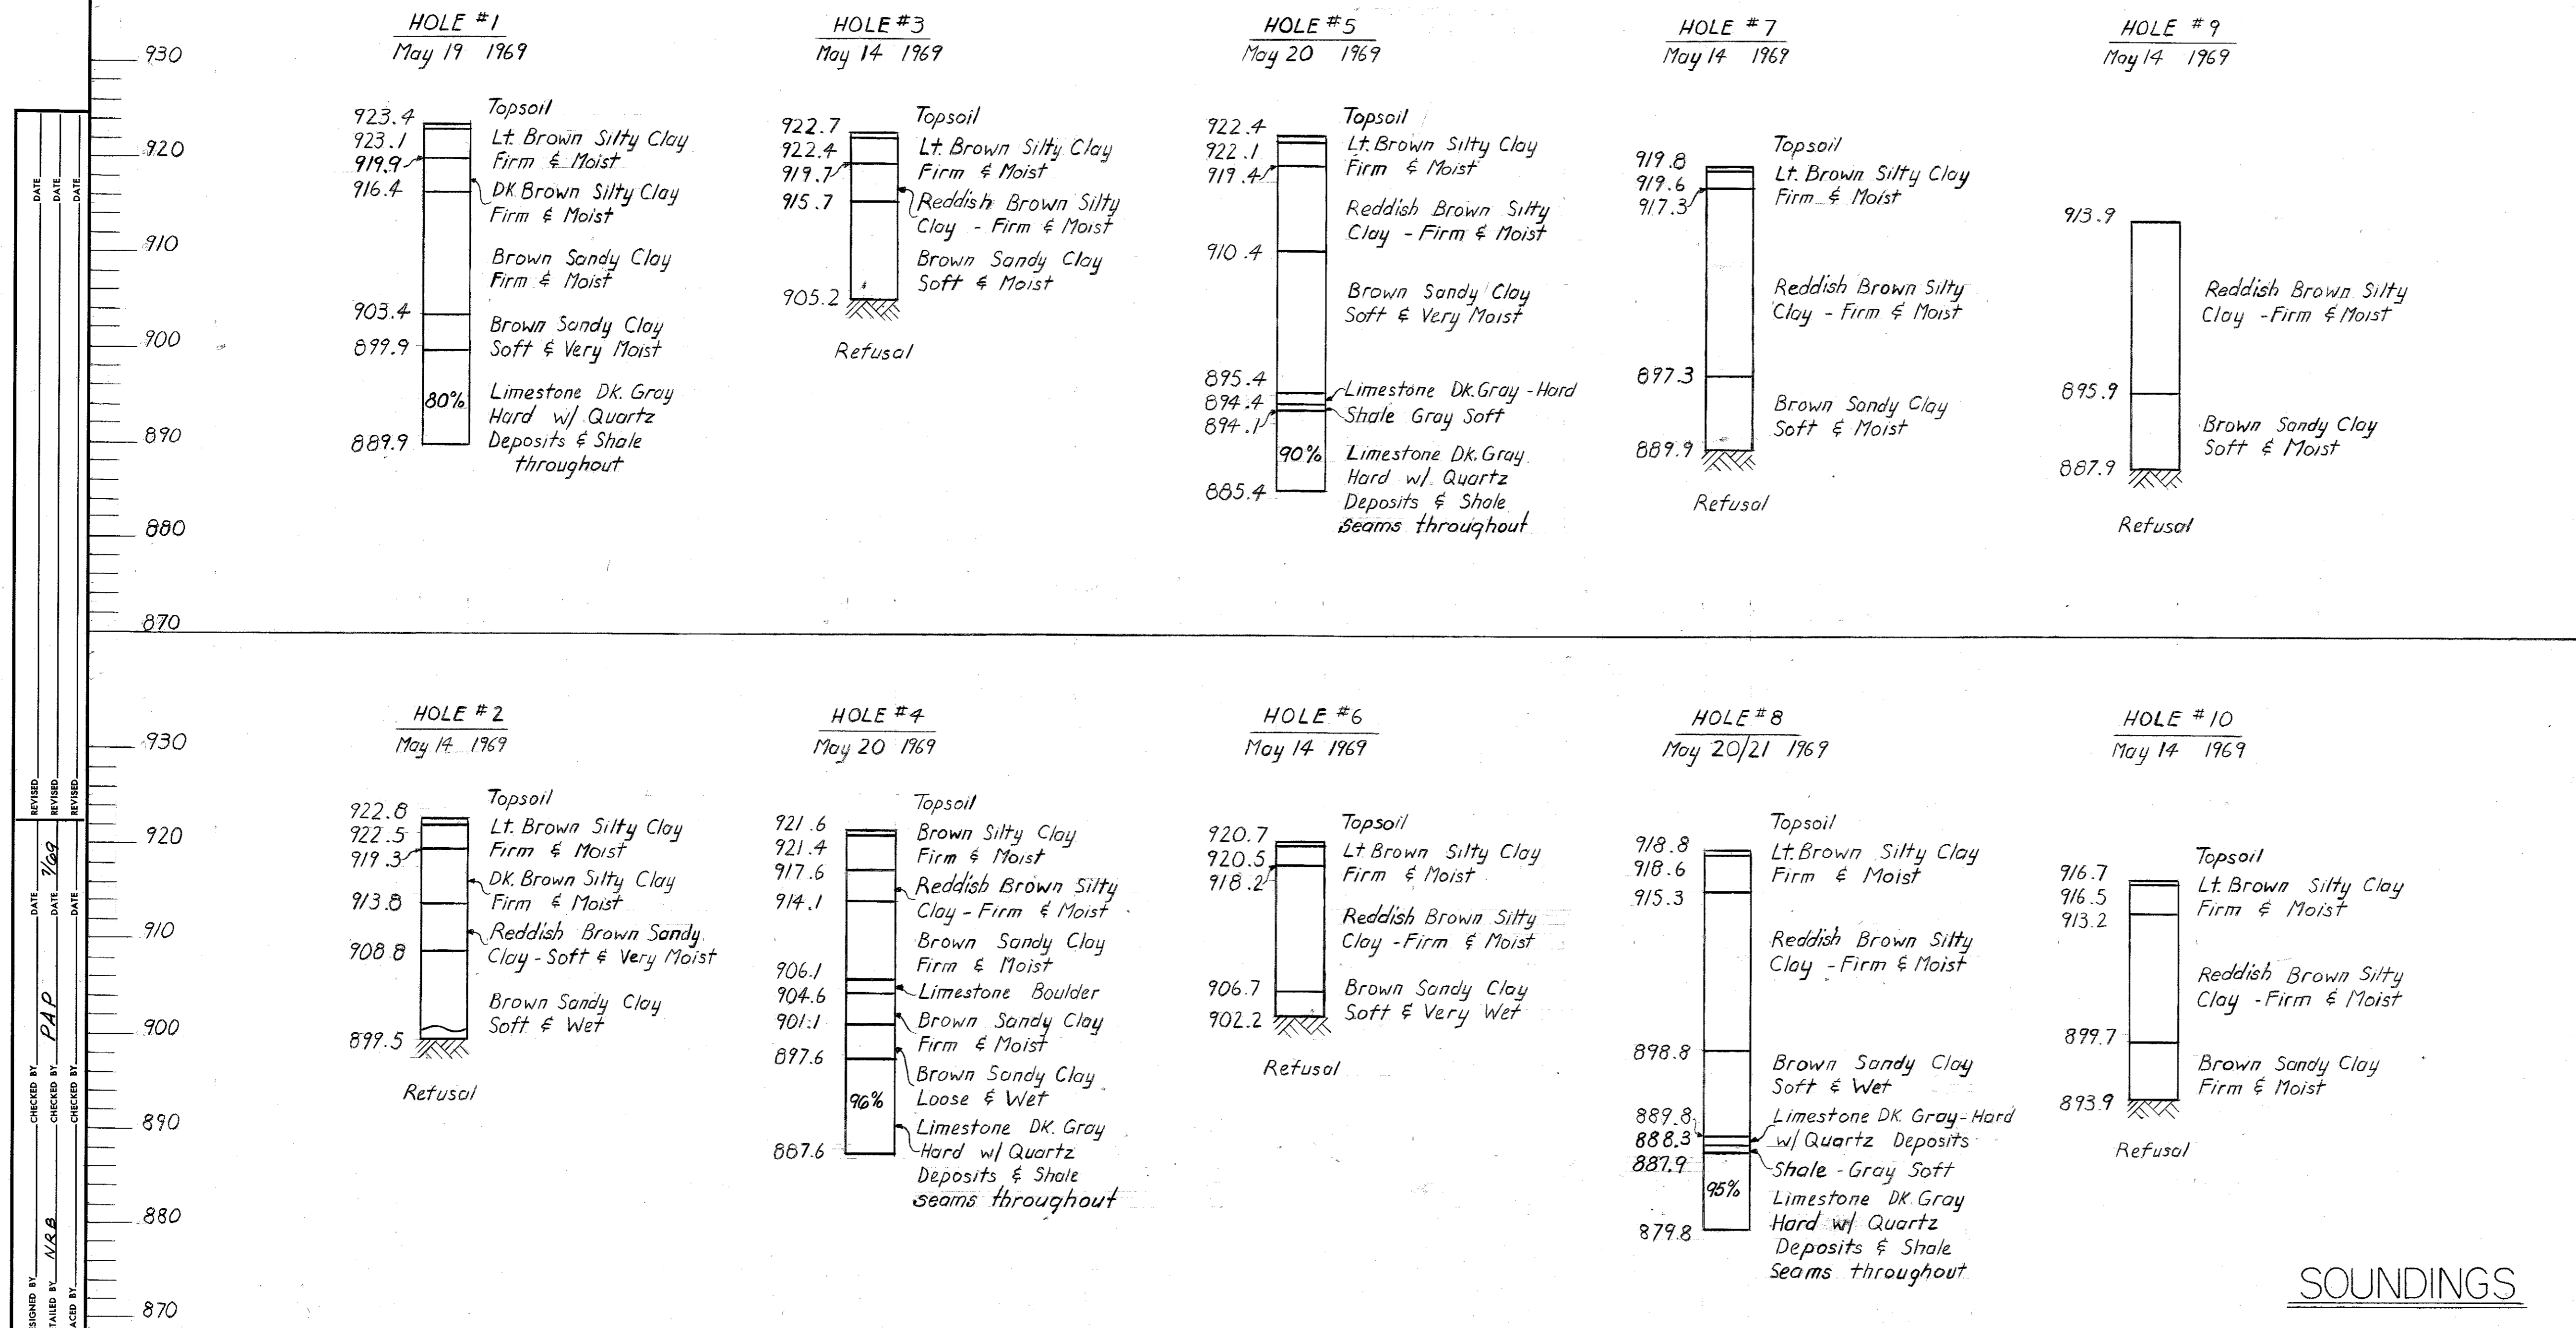 HOLE #1
May 19 1969
923.4
923.1
919.9
916.4
903.4
899.9
889.9
Topsoil
Lt. Brown Silty Clay
Firm & Moist
DK. Brown Silty Clay
Firm & Moist
Brown Sandy Clay
Firm & Moist
Brown Sandy Clay
Soft & Very Moist
80%
Limestone DK. Gray
Hard w/ Quartz
Deposits & Shale
throughout
HOLE #3
May 14 1969
922.7
922.4
919.7
915.7
905.2
Topsoil
Lt. Brown Silty Clay
Firm & Moist
Reddish Brown Silty
Clay - Firm & Moist
Brown Sandy Clay
Soft & Moist
Refusal
HOLE #5
May 20 1969
922.4
922.1
919.4
910.4
895.4
894.4
894.1
885.4
Topsoil
Lt. Brown Silty Clay
Firm & Moist
Reddish Brown Silty
Clay - Firm & Moist
Brown Sandy Clay
Soft & Very Moist
Limestone DK. Gray - Hard
Shale Gray Soft
90%
Limestone DK. Gray
Hard w/ Quartz
Deposits & Shale
seams throughout
HOLE #7
May 14 1969
919.8
919.6
917.3
897.3
889.9
Topsoil
Lt. Brown Silty Clay
Firm & Moist
Reddish Brown Silty
Clay - Firm & Moist
Brown Sandy Clay
Soft & Moist
Refusal
HOLE #9
May 14 1969
913.9
895.9
887.9
Reddish Brown Silty
Clay - Firm & Moist
Brown Sandy Clay
Soft & Moist
Refusal
930
920
910
900
890
880
870
HOLE #2
May 14 1969
922.8
922.5
919.3
913.8
908.8
899.5
Topsoil
Lt. Brown Silty Clay
Firm & Moist
DK. Brown Silty Clay
Firm & Moist
Reddish Brown Sandy
Clay - Soft & Very Moist
Brown Sandy Clay
Soft & Wet
Refusal
HOLE #4
May 20 1969
921.6
921.4
917.6
914.1
906.1
904.6
901.1
897.6
887.6
Topsoil
Brown Silty Clay
Firm & Moist
Reddish Brown Silty
Clay - Firm & Moist
Brown Sandy Clay
Firm & Moist
Limestone Boulder
Brown Sandy Clay
Firm & Moist
Brown Sandy Clay
Loose & Wet
96%
Limestone DK. Gray
Hard w/ Quartz
Deposits & Shale
seams throughout
HOLE #6
May 14 1969
920.7
920.5
918.2
906.7
902.2
Topsoil
Lt. Brown Silty Clay
Firm & Moist
Reddish Brown Silty
Clay - Firm & Moist
Brown Sandy Clay
Soft & Very Wet
Refusal
HOLE #8
May 20/21 1969
918.8
918.6
915.3
898.8
889.8
888.3
887.9
879.8
Topsoil
Lt. Brown Silty Clay
Firm & Moist
Reddish Brown Silty
Clay - Firm & Moist
Brown Sandy Clay
Soft & Wet
Limestone DK. Gray - Hard
w/ Quartz Deposits
Shale - Gray Soft
95%
Limestone DK. Gray
Hard w/ Quartz
Deposits & Shale
Seams throughout
HOLE #10
May 14 1969
916.7
916.5
913.2
899.7
893.9
Topsoil
Lt. Brown Silty Clay
Firm & Moist
Reddish Brown Silty
Clay - Firm & Moist
Brown Sandy Clay
Firm & Moist
Refusal
930
920
910
900
890
880
870
SOUNDINGS
SIGNED BY CHECKED BY DATE REVISED DATE
TAILED BY NRB CHECKED BY PAP DATE 7/69 REVISED DATE
ACED BY CHECKED BY DATE REVISED DATE